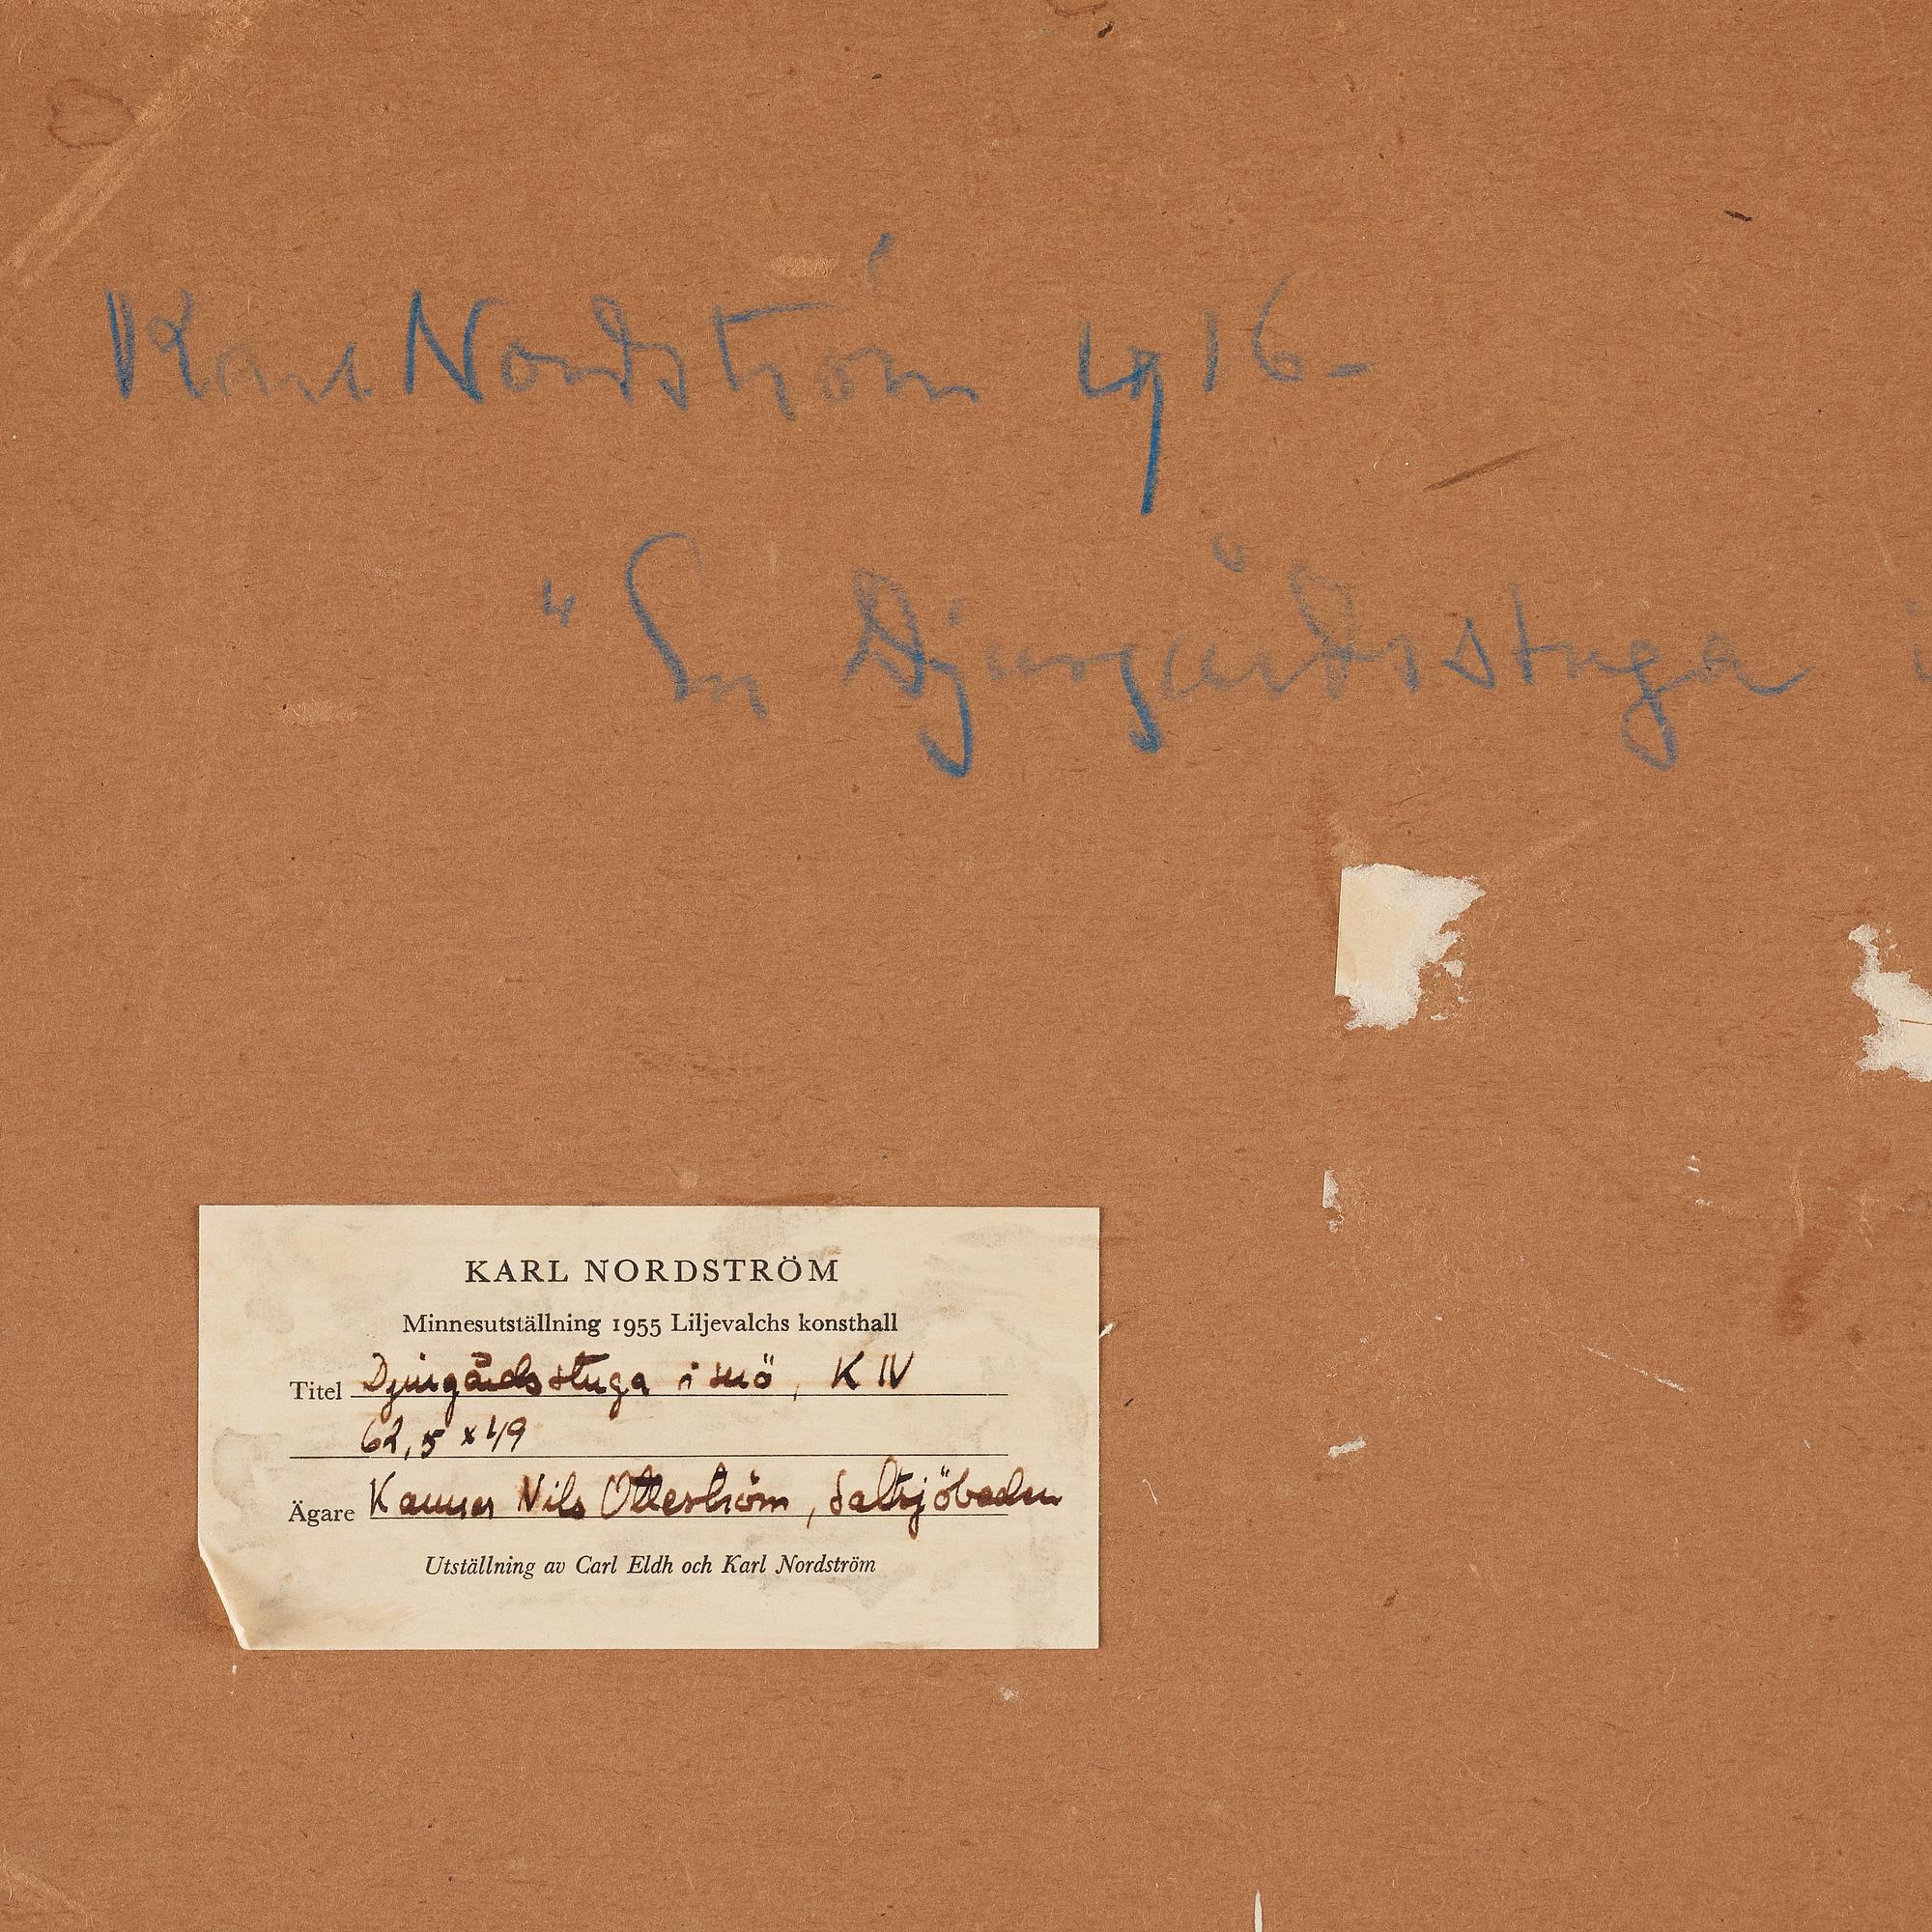 Karl Nordström 1916-
"En Djurgårdsstuga i
KARL NORDSTRÖM
Minnesutställning 1955 Liljevalchs konsthall
Titel Djurgårdsstuga i snö, K IV
62,5 x 49
Ägare Kamrer Nils Otterström, Saltsjöbaden
Utställning av Carl Eldh och Karl Nordström